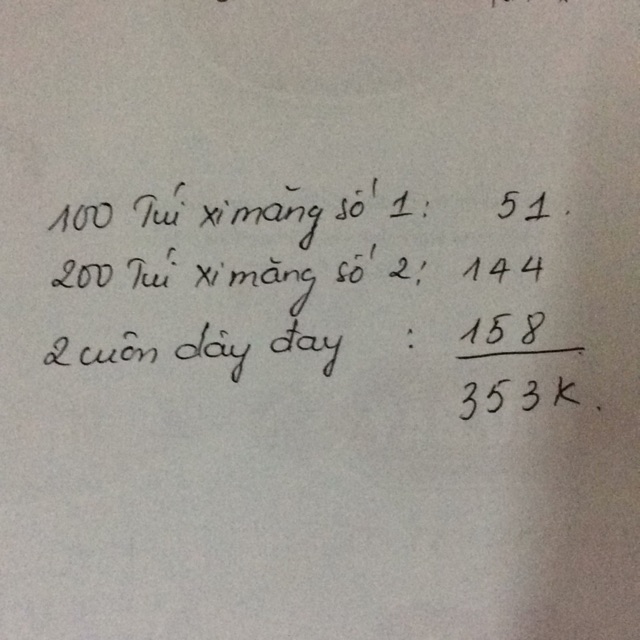 100 Túi xi măng số 1: 51.
200 Túi xi măng số 2: 144
2 cuôn dây đay : 158
353K.